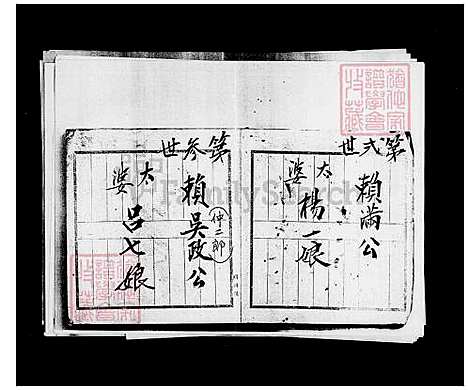 第弍世
賴滿公
太婆 楊一娘
第參世
賴吳政公
仲二郎
太婆 呂七娘
FamilySearch